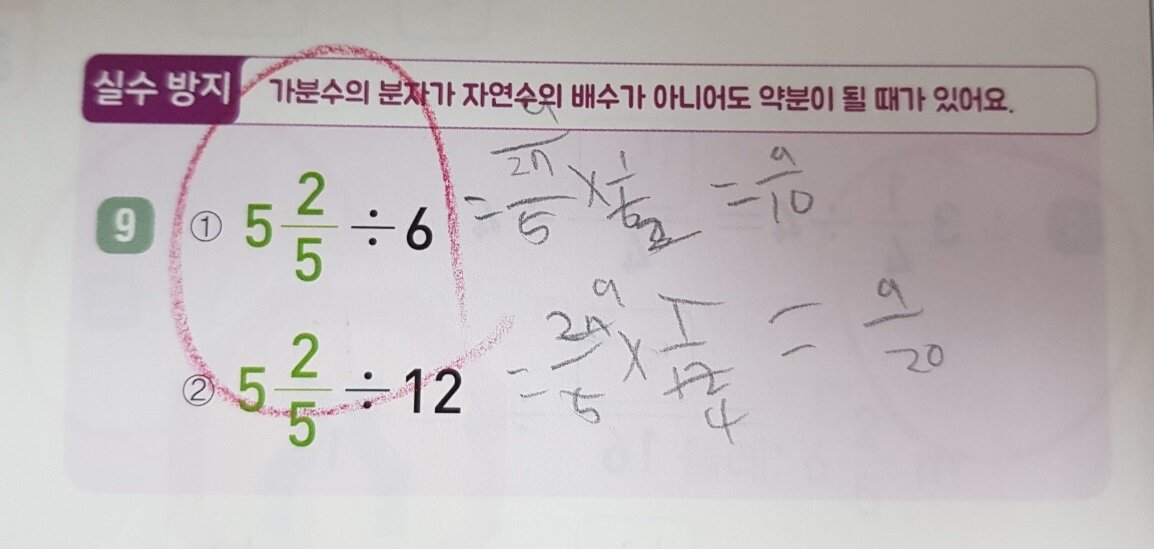 실수 방지 가분수의 분자가 자연수의 배수가 아니어도 약분이 될 때가 있어요.
9 ① 5 2/5 ÷ 6 = 27/5 × 1/6 = 9/10
9
2
② 5 2/5 ÷ 12 = 27/5 × 1/12 = 9/20
9
4